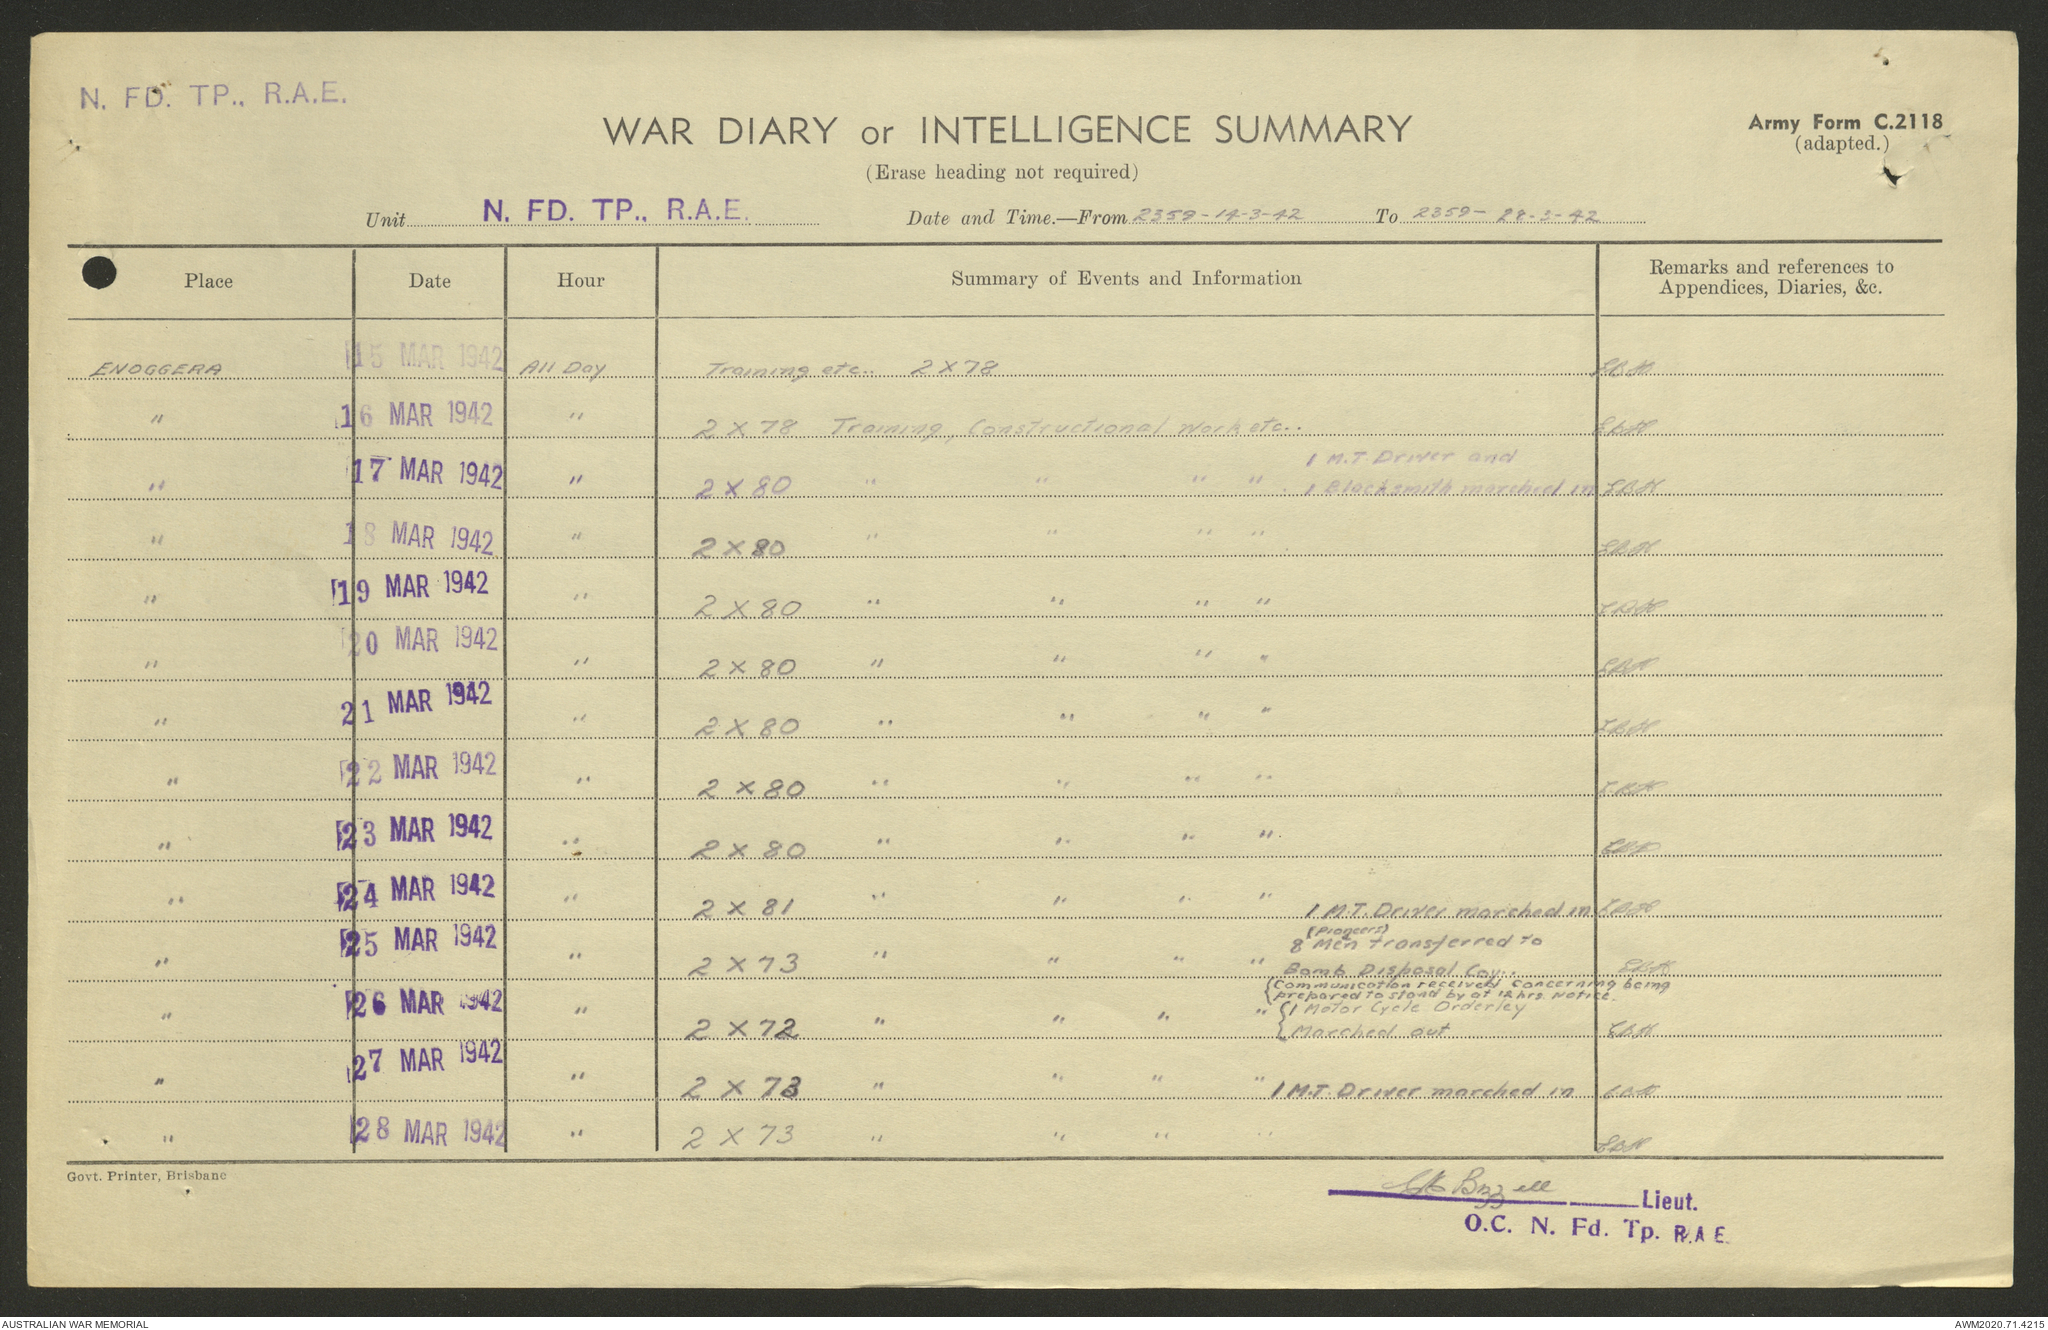 N. FD. TP., R.A.E.
WAR DIARY or INTELLIGENCE SUMMARY
(Erase heading not required)
Army Form C.2118
(adapted.)
Unit N. FD. TP., R.A.E. Date and Time.—From 2359-14-3-42 To 2359-28-3-42
Place Date Hour Summary of Events and Information Remarks and references to
Appendices, Diaries, &c.
ENOGGERA 15 MAR 1942 All Day Training etc.. 2 X 78
" 16 MAR 1942 " 2 X 78 Training, Constructional Work etc..
1 M.T. Driver and
" 17 MAR 1942 " 2 X 80 " " " " 1 Blacksmith marched in
" 18 MAR 1942 " 2 X 80 " " " "
" 19 MAR 1942 " 2 X 80 " " " "
" 20 MAR 1942 " 2 X 80 " " " "
" 21 MAR 1942 " 2 X 80 " " " "
" 22 MAR 1942 " 2 X 80 " " " "
" 23 MAR 1942 " 2 X 80 " " " "
" 24 MAR 1942 " 2 X 81 " " " " 1 M.T. Driver marched in
(Pioneers)
8 Men transferred to
" 25 MAR 1942 " 2 X 73 " " " " Bomb Disposal Coy..
(Communication received concerning being
prepared to stand by at 12 hrs. notice.
{1 Motor Cycle Orderley
" 26 MAR 1942 " 2 X 72 " " " " Marched out
" 27 MAR 1942 " 2 X 73 " " " " 1 M.T. Driver marched in
" 28 MAR 1942 " 2 X 73 " " " "
Govt. Printer, Brisbane
Lieut.
O.C. N. Fd. Tp. R.A.E.
AUSTRALIAN WAR MEMORIAL
AWM2020.71.4215